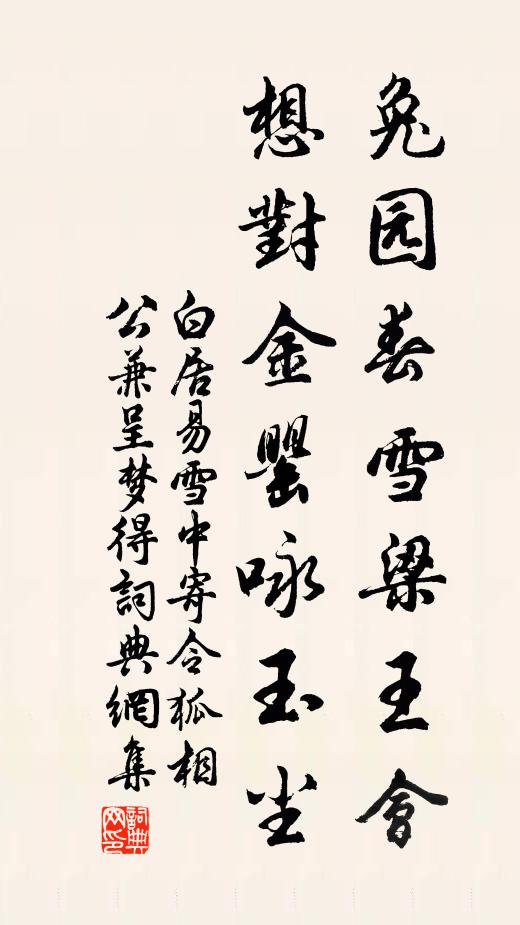 兔园春雪梁王會
想對金罍咏玉尘
白居易雪中寄令狐相
公兼呈梦得詞典網集
詞典網印